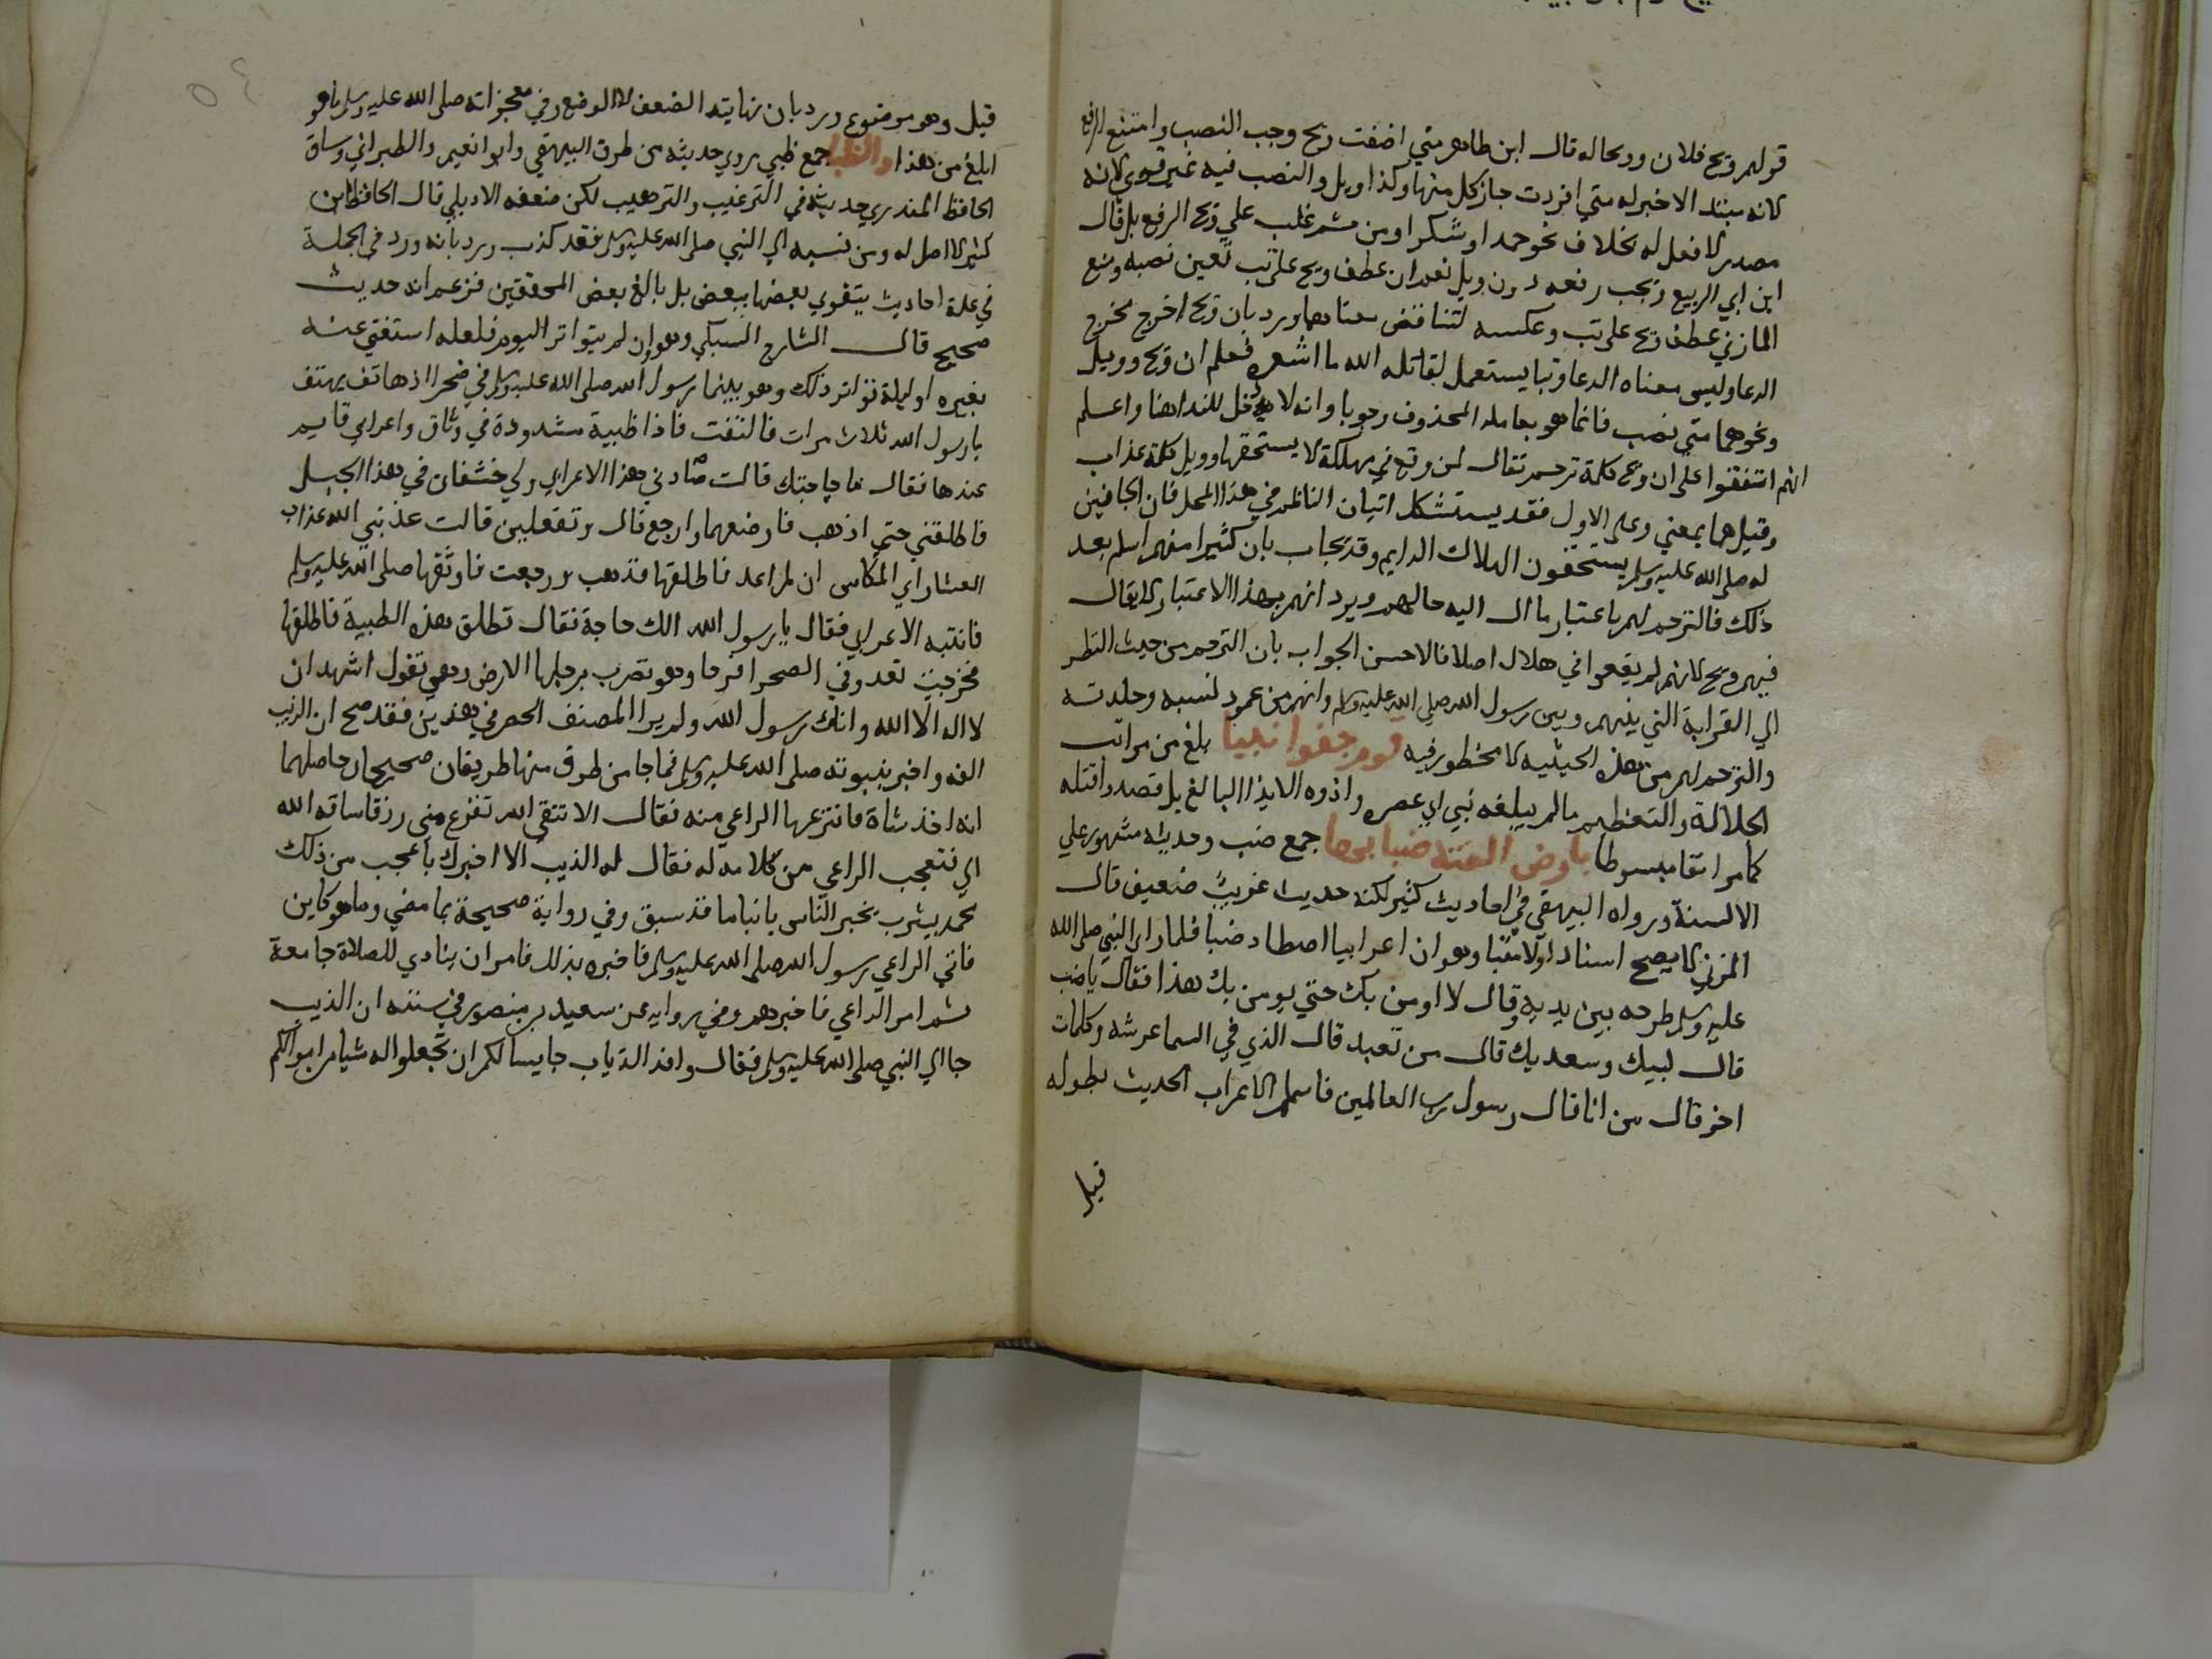 قولهم ويح فلان وويحا له قال ابن طاهر متي اضفت ويح وجب النصب وامتنع الرفع
لانه مبتدا لاخبر له متي افردت جاز كل منها وكذا ويل والنصب فيه غير قوي لانه
مصدر لا فعل له بخلاف نحو حمدا وشكرا ومن ثم غلب علي ويح الرفع بل قال
ابن ابي الربيع وتجب رفعه دون ويل نعم ان عطف ويح علي تب تعين نصبه ومنع
المازني عطف ويح علي تب وعكسه لتناقض معناهما ورد بان ويح اخرج مخرج
الدعا وليس معناه الدعا وتبا يستعمل لقاتله الله ما اشعره فعلم ان ويح وويل
ونحوهما متي نصب فانما هو بعامله المحذوف وجوبا وانه لا يدخل للندا هنا واعلم
انهم اتفقوا علي ان ويح كلمة ترحم تقال لمن وقع في مهلكة لا يستحقها وويل كلمة عذاب
وقيل هما بمعني وعلي الاول فقد يستشكل اتيان الناظم في هذا المحل فان الجافين
له صلي الله عليه وسلم يستحقون الهلاك الدايم وقد يجاب بان كثيرا منهم اسلم بعد
ذلك فالترحم لهم باعتبار ما ال اليه حالهم ويرد انهم بهذا الاعتبار لا يقال
فيهم ويح لانهم لم يقعوا في هلال اصلا فالاحسن الجواب بان الترحم من حيث النظر
الي القرابة التي بينهم وبين رسول الله صلي الله عليه وسلم وانهم من عمود نسبه وجلدته
والترحم لهم من هذه الحيثية لا محظور فيه قوم جفوا نبيا بلغ من مراتب
الجلالة والتعظيم ما لم يبلغه نبي اي عصره واذوه الايذا البالغ بل قصدوا قتله
كما مر انفا مبسوطا بارض الفته ضبابها جمع ضب وحديثه مشهور علي
الالسنة ورواه البيهقي في احاديث كثير لكنه حديث غريب ضعيف قال
المزني لا يصح اسنادا ولا متنا وهو ان اعرابيا اصطاد ضبا فلما راي النبي صلي الله
عليه وسلم طرحه بين يديه وقال لا اومن بك حتي يومن بك هذا فقال ياضب
قال لبيك وسعديك قال من تعبد قال الذي في السما عرشه وكلمات
اخر قال من انا قال رسول رب العالمين فاسلم الاعراب الحديث بطوله
قيل
٥٤
قيل وهو موضوع ورد بان نهايته الضعف لا الوضع وفي معجزاته صلي الله عليه وسلم ما هو
ابلغ من هذا والظبا جمع ظبي روي حديثه من طرق البيهقي وابو نعيم والطبراني وساق
الحافظ المنذري حديثه في الترغيب والترهيب لكن ضعفه الاردبيلي قال الحافظ ابن
كثير لا اصل له ومن نسبه الي النبي صلي الله عليه وسلم فقد كذب ورد بانه ورد في الجملة
في عدة احاديث يتقوي بعضها ببعض بل بالغ بعض المحققين فزعم انه حديث
صحيح قال الشارح السبكي وهو ان لم يتواتر اليوم فلعله استغني عنه
بغيره او ليلة تواتر ذلك وهو بينما رسول الله صلي الله عليه وسلم في ضحرا اذ هاتف يهتف
يا رسول الله ثلاث مرات فالتفت فاذا ظبية مشدودة في وثاق واعرابي قايم
عندها فقال ما حاجتك قالت صادني هذا الاعرابي ولي خشفان في هذا الجبل
فاطلقني حتي اذهب فارضعهما وارجع قال وتفعلين قالت عذبني الله عذاب
العشار اي المكاس ان لم اعد فاطلقها فذهب ورجعت فاوثقها صلي الله عليه وسلم
فانتبه الاعرابي فقال يا رسول الله الك حاجة فقال تطلق هذه الظبية فاطلقها
فخرجت تعدو في الصحرا فرحا وهو تضرب برجلها الارض وهي تقول اشهد ان
لا اله الا الله وانك رسول الله ولم يرا المصنف الحصر في هذين فقد صح ان الذيب
الفه واخبر بنبوته صلي الله عليه وسلم فما جا من طرق منها طريقان صحيحان حاصلهما
انه اخذ شاة فانتزعها الراعي منه فقال الا تتقي الله تفزع مني رزقا ساقه الله
الي فتعجب الراعي من كلامه له فقال له الذيب الا اخبرك باعجب من ذلك
محمد بيثرب يخبر الناس بانبا ما قد سبق وفي رواية صحيحة بما مضي وما هو كاين
فاتي الراعي رسول الله صلي الله عليه وسلم فاخبره بذلك فامر ان ينادي للصلاة جامعة
ثم امر الراعي فاخبرهم وفي رواية عن سعيد بن منصور في سننه ان الذيب
جا الي النبي صلي الله عليه وسلم فقال وافد الذياب جا يسالكم ان تجعلوا له شيا من اموالكم